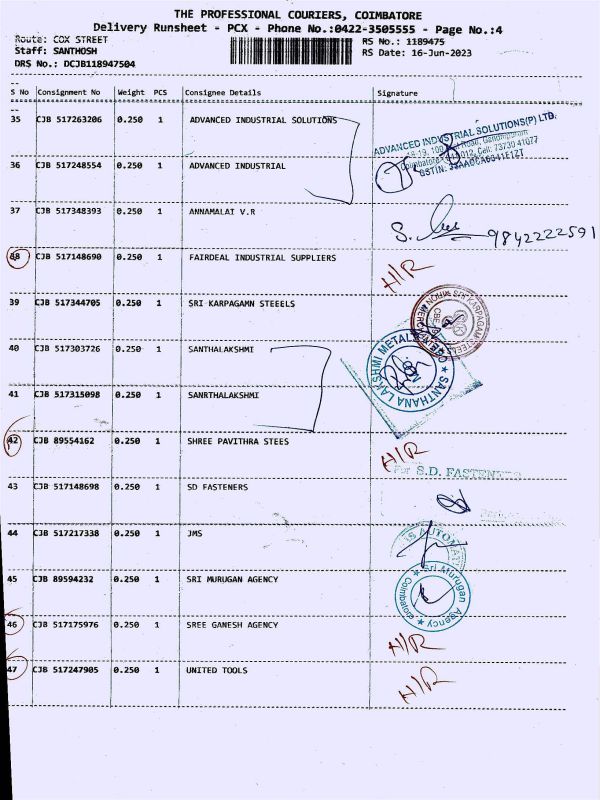 THE PROFESSIONAL COURIERS, COIMBATORE
Delivery Runsheet - PCX - Phone No.:0422-3505555 - Page No.:4
Route: COX STREET
RS No.: 1189475
Staff: SANTHOSH
RS Date: 16-Jun-2023
DRS No.: DCJB118947504
S No Consignment No Weight PCS Consignee Details Signature
35 CJB 517263206 0.250 1 ADVANCED INDUSTRIAL SOLUTIONS
ADVANCED INDUSTRIAL SOLUTIONS(P) LTD.
36 CJB 517248554 0.250 1 ADVANCED INDUSTRIAL
37 CJB 517348393 0.250 1 ANNAMALAI V.R
9842222591
38 CJB 517148690 0.250 1 FAIRDEAL INDUSTRIAL SUPPLIERS
H/R
39 CJB 517344705 0.250 1 SRI KARPAGAMN STEEELS
SRI KARPAGAM STEELS
40 CJB 517303726 0.250 1 SANTHALAKSHMI
SANTHANA LAKSHMI METAL
41 CJB 517315098 0.250 1 SANRTHALAKSHMI
42 CJB 89554162 0.250 1 SHREE PAVITHRA STEES
H/R
For S.D. FASTENERS
43 CJB 517148698 0.250 1 SD FASTENERS
44 CJB 517217338 0.250 1 JMS
45 CJB 89594232 0.250 1 SRI MURUGAN AGENCY
Sri Murugan Agency Coimbatore
46 CJB 517175976 0.250 1 SREE GANESH AGENCY
H/R
47 CJB 517247905 0.250 1 UNITED TOOLS
H/R